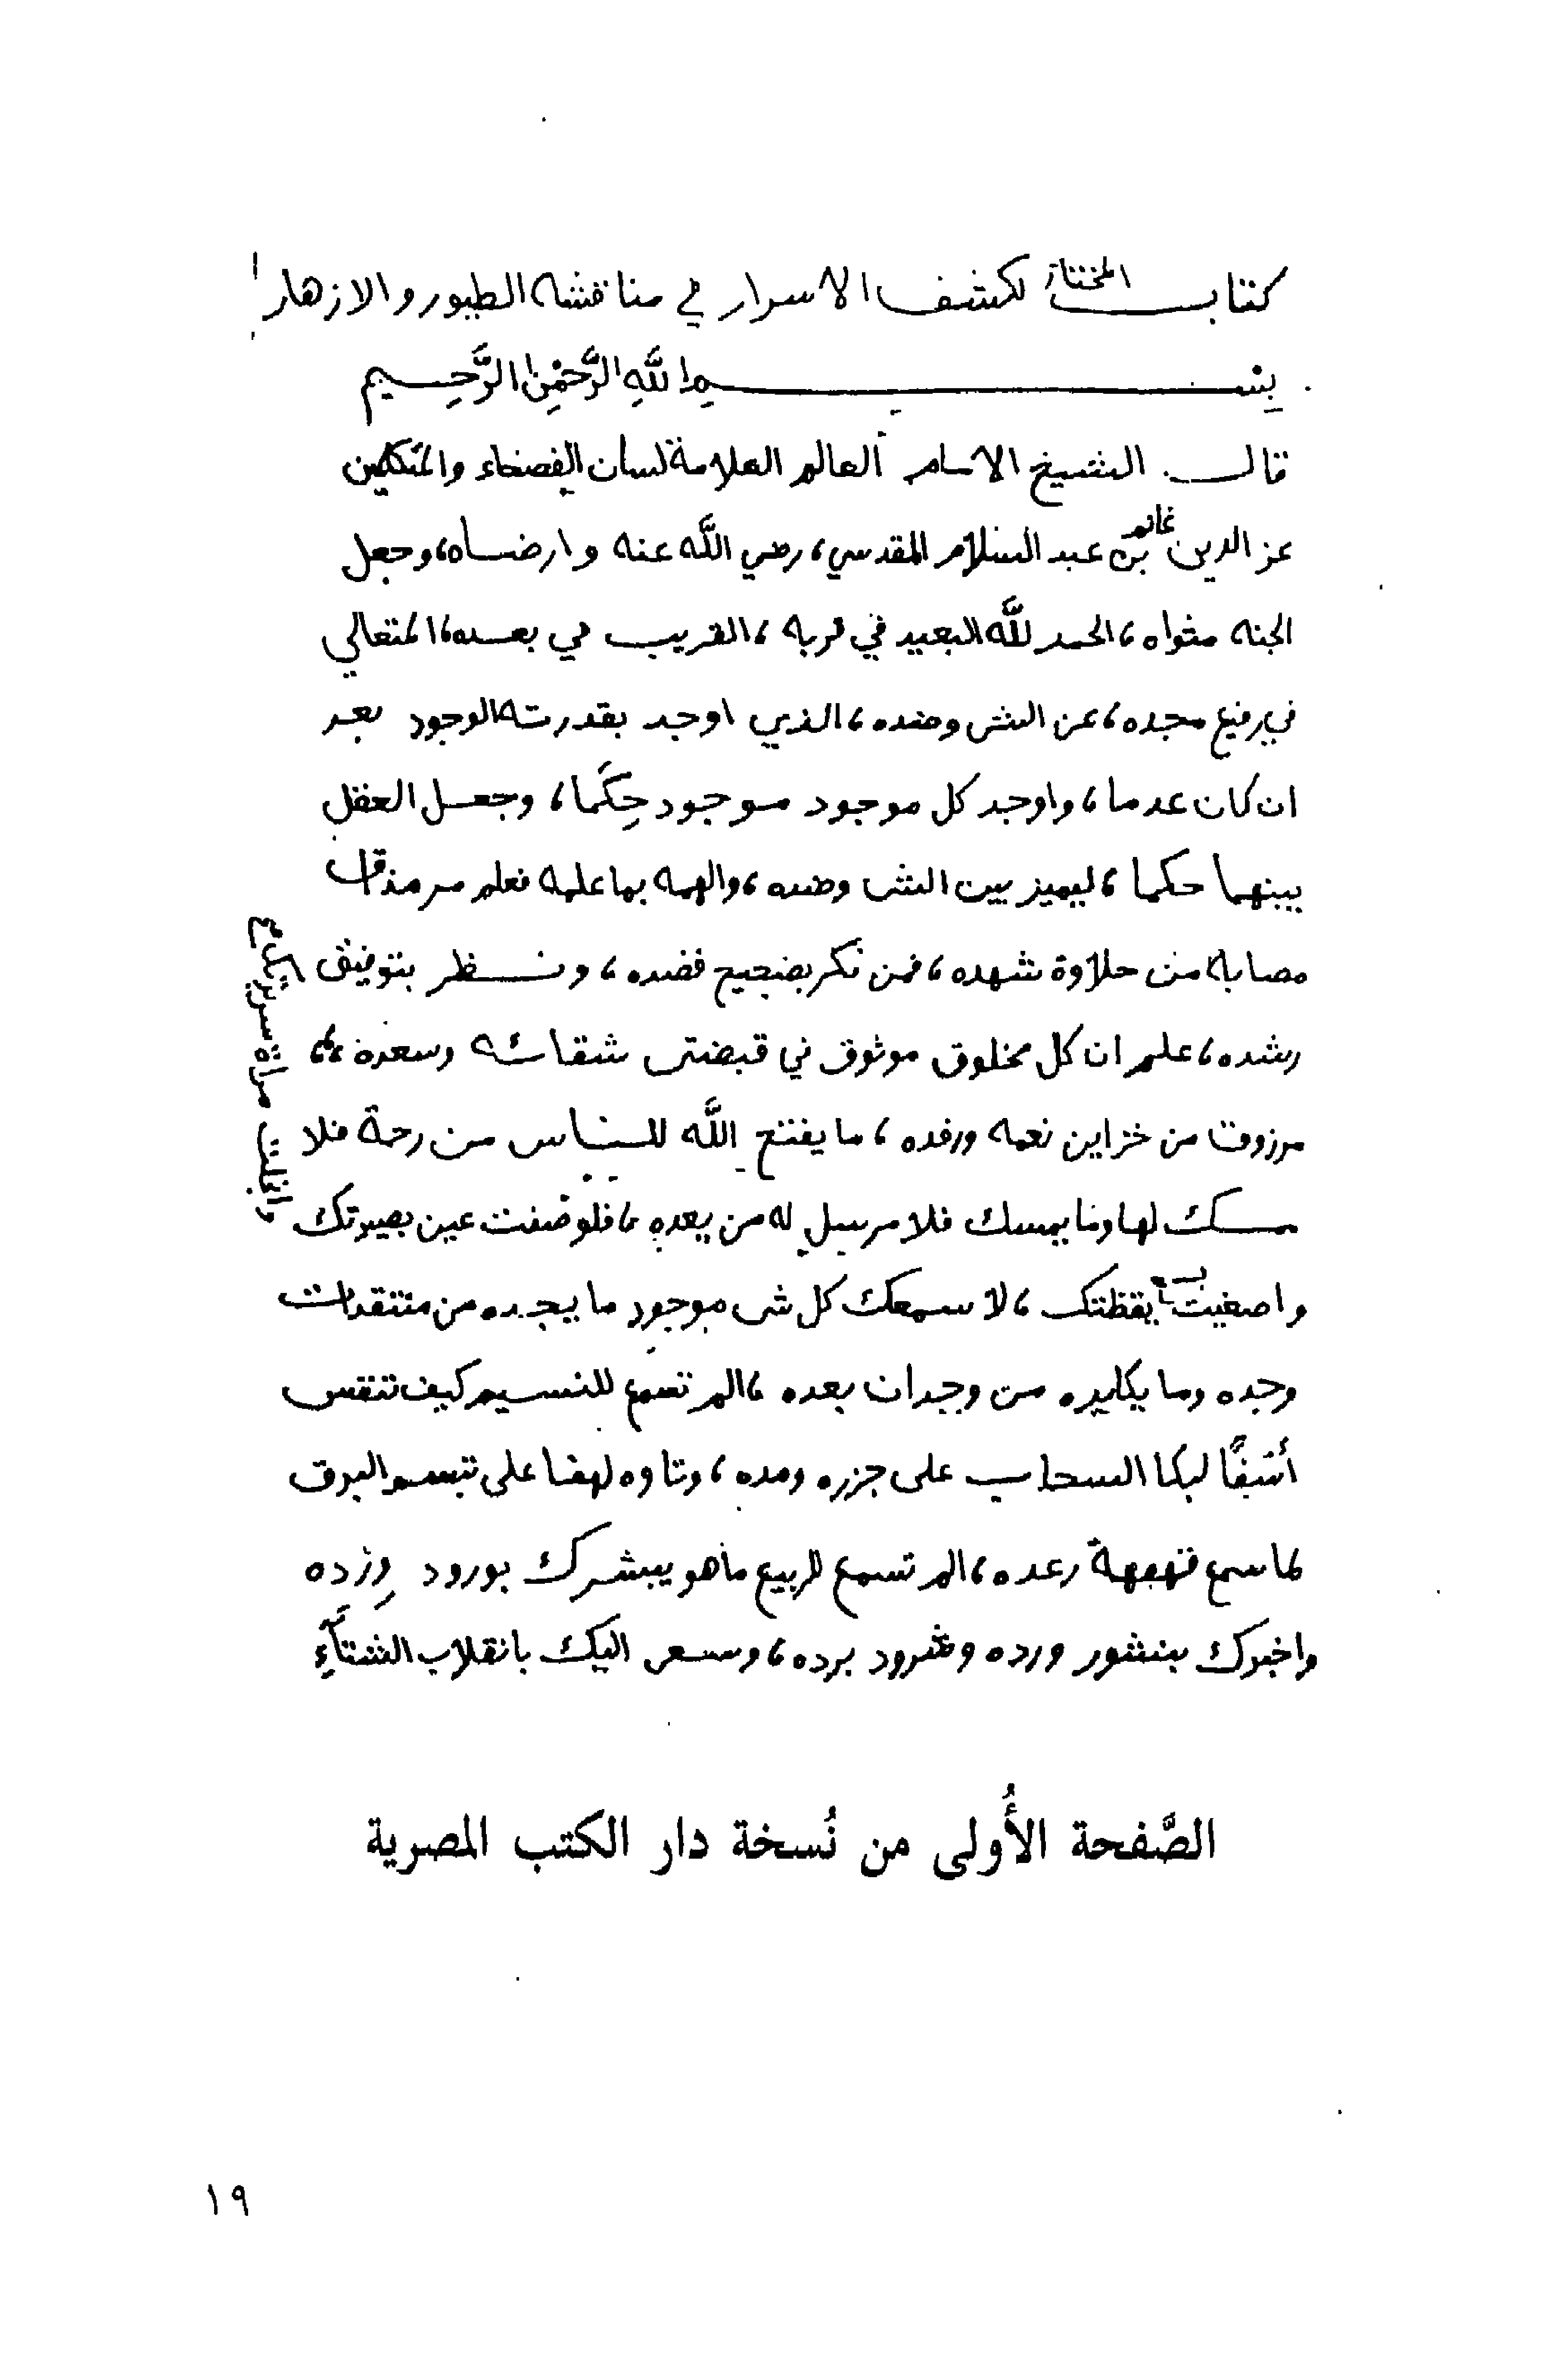 كتاب المختار لكشف الاسرار في مناقشه الطيور والازهار
بِسم اللَّهِ الرَّحْمنِ الرَّحِيم
قال الشيخ الامام العالم العلامة لسان الفصحاء والمتكلمين
عز الدين بن غانم عبد السلام المقدسي، رضي اللَّه عنه وارضاه، وجعل
الجنه مثواه، الحمد للَّه البعيد في قربه، القريب في بعده، المتعالي
في رفيع مجده، عن الشى وضده، الذي اوجد بقدرته الوجود بعد
ان كان عدما، واوجد كل موجود موجود حِكَما، وجعل العقل
بينهما حكما، ليميز بين الشى وضده، والهمه بما علمه فعلم مر مذاق
مصابه من حلاوة شهده، فمن فكر بصحيح قصده، ونظر بتوفيق
رشده، علم ان كل مخلوق موثوق في قبضتى شقائه وسعده،
مرزوق من خزاين نعمه ورفده، ما يفتح اللَّه للناس من رحمة فلا
ممسك لها وما يمسك فلا مرسل له من بعده، فلو صفت عين بصيرتك
واقبلت مراة سريرتك
واصغيت بسمع يقظتك، لاسمعك كل شى موجود ما يجده من منتقدات
وجده وما يكابده من وجدان بعده، الم تسمع للنسيم كيف تنفس
أسَفًا لبكا السحاب على جزره ومده، وتاوه لهفا على تبسم البرق
لما سمع قهقهة رعده، الم تسمع الربيع ما هو يبشرك بورود وِرْده
واخبرك بنشور ورده وشرود برده، وسعى اليك بانقلاب الشتآءِ
الصَّفحة الأُولى من نُسخة دار الكتب المصرية
١٩